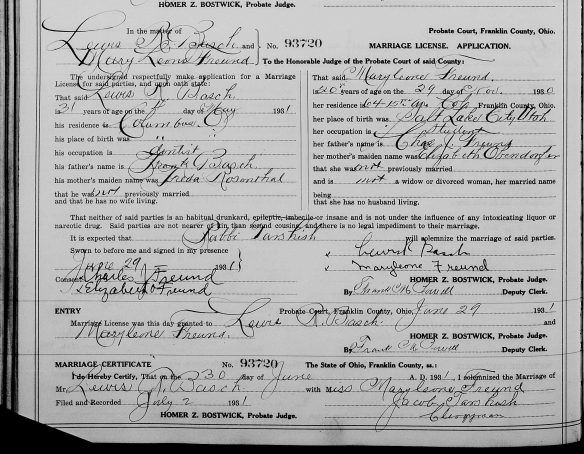 HOMER Z. BOSTWICK, Probate Judge.
In the matter of
Probate Court, Franklin County, Ohio.
Lewis R. Basch and
No. 93720
MARRIAGE LICENSE. APPLICATION.
Mary Leone Freund
To the Honorable Judge of the Probate Court of said County:
The undersigned respectfully make application for a Marriage
License for said parties, and upon oath state:
That said Lewis R. Basch,
is 31 years of age on the day of May 1931
his residence is Columbus, O
his place of birth was " "
his occupation is dentist
his father's name is Frank Basch
his mother's maiden name was Freda Rosenthal
that he was not previously married
and that he has no wife living.
That said Maryleone Freund.
is 20 years of age on the 29 day of Nov. 1930
her residence is Franklin County, Ohio
her place of birth was Salt Lake City Utah
her occupation is Student
her father's name is Chas Freund
her mother's maiden name was Elizabeth Obendorfer
that she was not previously married
and is not a widow or divorced woman, her married name
being
that she has no husband living.
That neither of said parties is an habitual drunkard, epileptic, imbecile or insane and is not under the influence of any intoxicating liquor or
narcotic drug. Said parties are not nearer of kin than second cousins, and there is no legal impediment to their marriage.
It is expected that Rabbi Tarshish will solemnize the marriage of said parties.
Sworn to before me and signed in my presence
June 29 1931
Consent Charles J Freund
Elizabeth O Freund
Lewis R Basch
Maryleone Freund
HOMER Z. BOSTWICK, Probate Judge.
By Frank M Deputy Clerk.
ENTRY
Probate Court, Franklin County, Ohio, June 29 1931
Marriage License was this day granted to Lewis R. Basch and
Maryleone Freund.
HOMER Z. BOSTWICK, Probate Judge.
By Frank M Deputy Clerk.
MARRIAGE CERTIFICATE
No. 93720
The State of Ohio, Franklin County, ss.:
I do Hereby Certify, That on the 30 day of June A. D. 1931, I solemnized the Marriage of
Mr. Lewis R. Basch with Miss Maryleone Freund
Filed and Recorded July 2 1931
Jacob Tarshish
HOMER Z. BOSTWICK, Probate Judge.
Clergyman